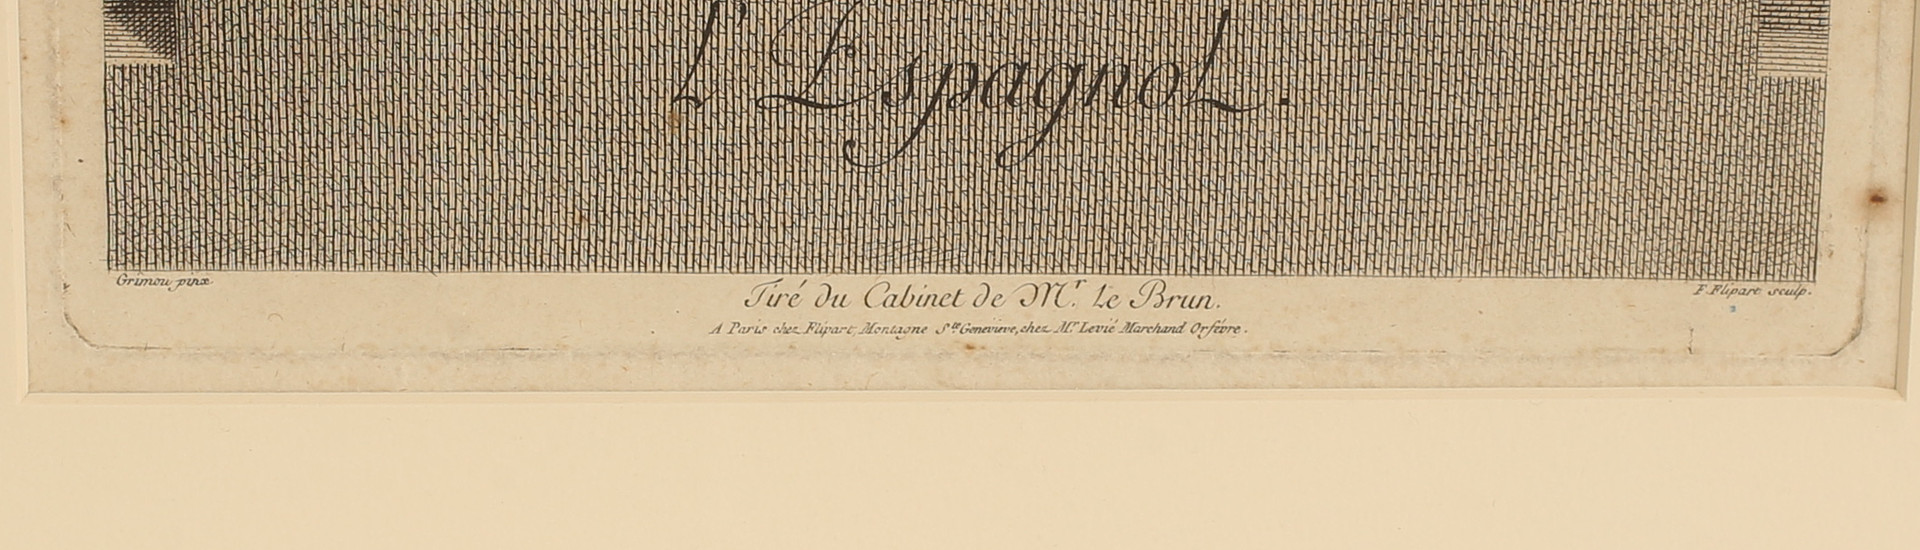 L'Espagnol.
Grimou pinx
Tiré du Cabinet de Mr. Le Brun.
F. Flipart sculp.
A Paris chez Flipart, Montagne Ste. Genevieve, chez Mr. Levié Marchand Orfévre.